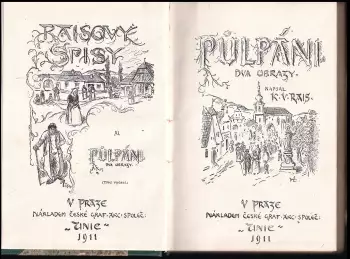 RAISOVY
SPISY
XI.
PŮLPÁNI.
DVA OBRAZY.
V PRAZE
NÁKLADEM ČESKÉ GRAF. AKC. SPOLEČ.
„UNIE“
1911
PŮLPÁNI.
DVA OBRAZY.
NAPSAL
K.V. RAIS.
V PRAZE
NÁKLADEM ČESKÉ GRAF. AKC. SPOLEČ.
„UNIE“
1911